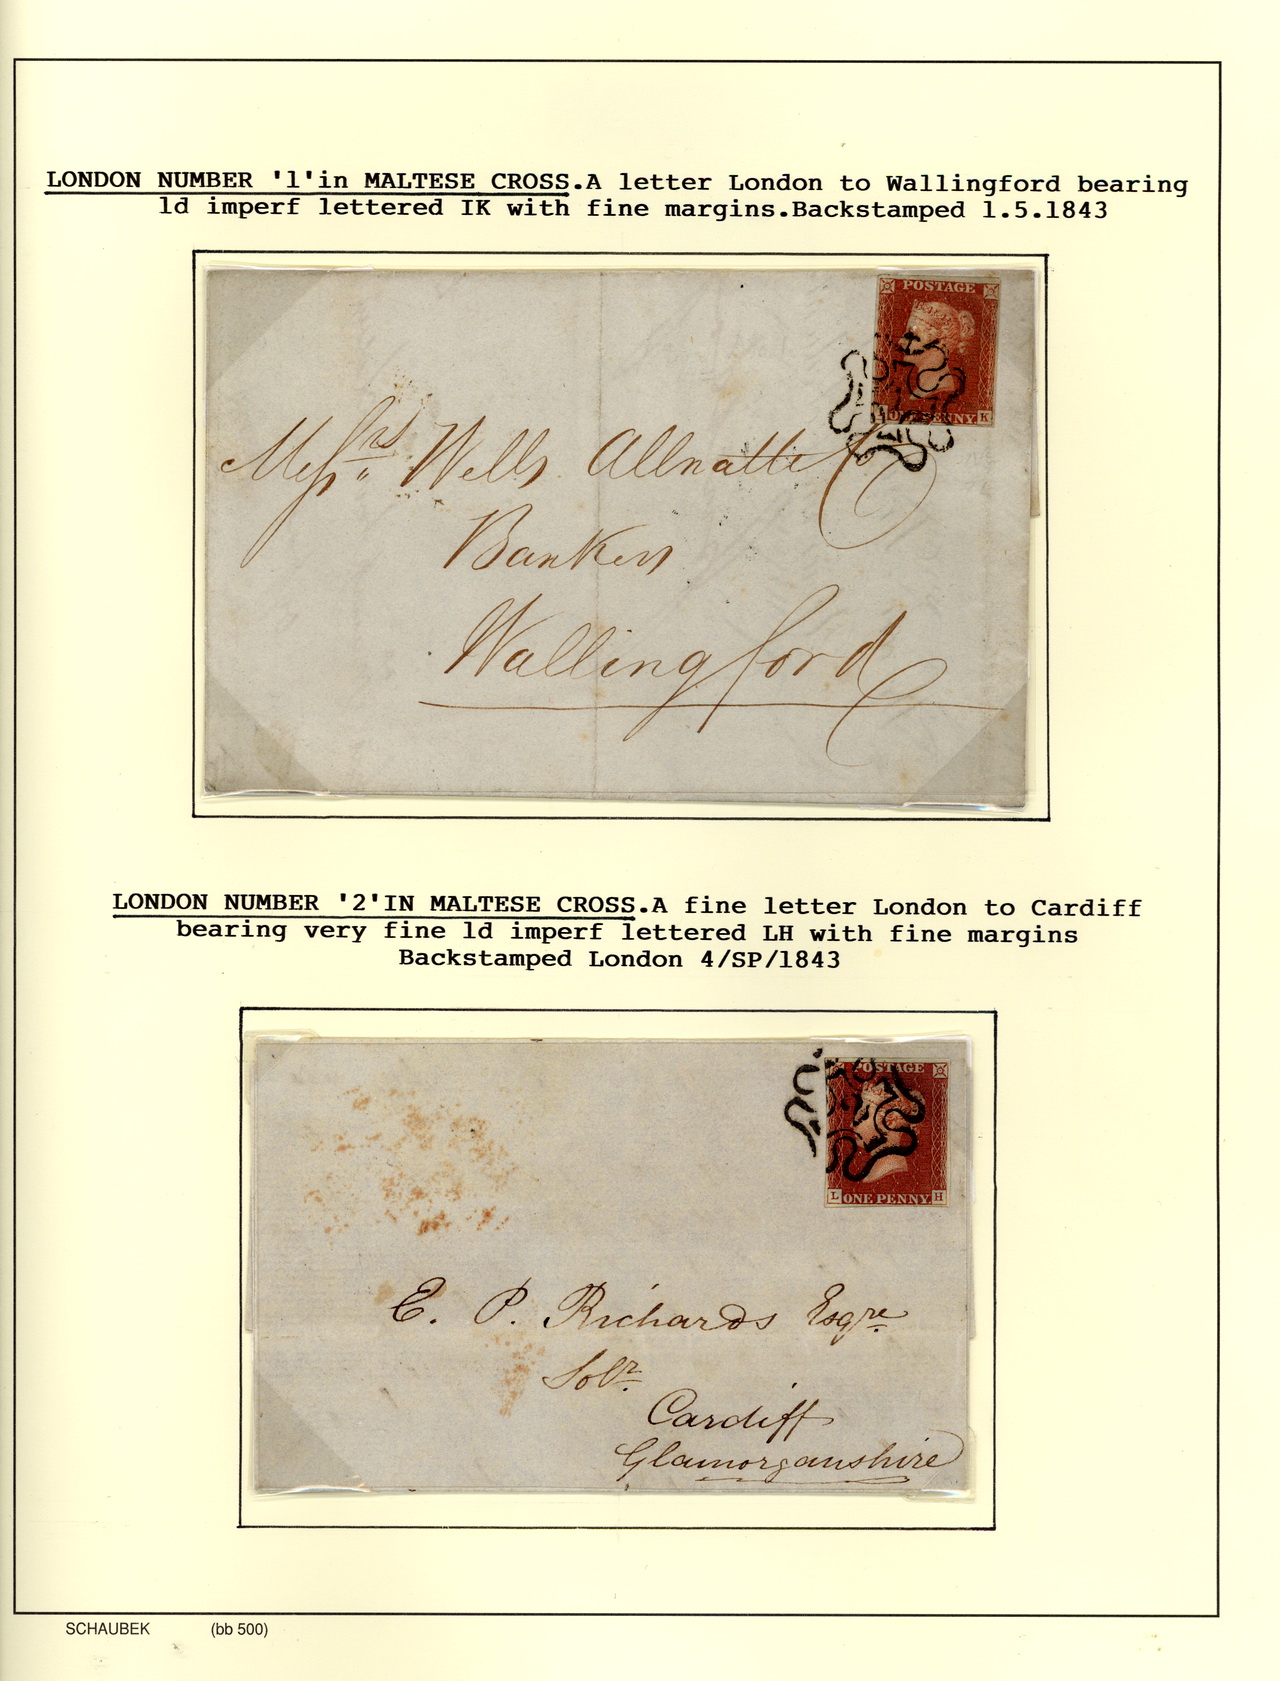 LONDON NUMBER '1'in MALTESE CROSS.A letter London to Wallingford bearing
1d imperf lettered IK with fine margins.Backstamped 1.5.1843
POSTAGE
ONE PENNY
K
Messrs Wells Allnatte & Co
Bankers
Wallingford
LONDON NUMBER '2'IN MALTESE CROSS.A fine letter London to Cardiff
bearing very fine 1d imperf lettered LH with fine margins
Backstamped London 4/SP/1843
POSTAGE
2
L ONE PENNY. H
E. P. Richards Esqre
Solr.
Cardiff
Glamorganshire
SCHAUBEK (bb 500)